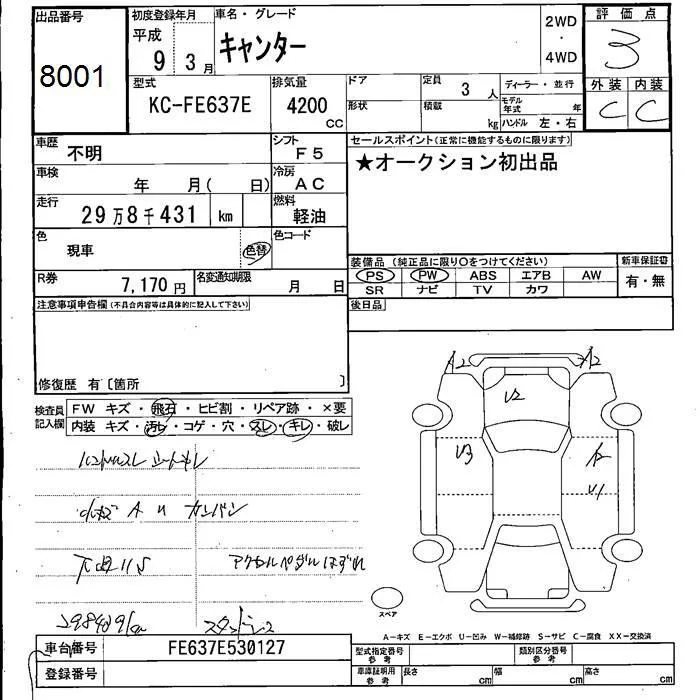 出品番号 初度登録年月 車名・グレード 2WD・4WD 評価点
8001 平成 9 3月 キャンター 3
型式 排気量 ドア 定員 3人 ディーラー・並行 外装 内装
KC-FE637E 4200 CC 形状 積載 kg モデル年式 年 ハンドル 左・右 C C
車歴 不明 シフト F5 セールスポイント(正常に機能するものに限ります)
車検 年 月( 日) 冷房 AC ★オークション初出品
走行 29万8千431 km 燃料 軽油
色 現車 色替 色コード
装備品(純正品に限り○をつけてください) 新車保証書
R券 7,170円 名変通知期限 月 日 PS PW ABS エアB AW 有・無
SR ナビ TV カワ
注意事項申告欄(不具合内容等は具体的に記入して下さい) 後日品
修復歴 有〔箇所 〕
検査員記入欄 FW キズ・飛石・ヒビ割・リペア跡・×要
内装 キズ・汚レ・コゲ・穴・スレ・キレ・破レ
A2 A2
U2
U3 A2
U1
小キズ A U カンバン
アクセルペダルはずれ
298431km スタッドレス
スペア
A-キズ E-エクボ U-凹み W-補修跡 S-サビ C-腐食 XX-交換済
車台番号 FE637E530127 型式指定番号 参考 類別区分番号 参考
登録番号 車庫証明用 参考 長さ cm 幅 cm 高さ cm